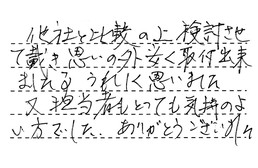 他社と比較の上 検討させ
て戴き思いの外安く取付出来
ました。うれしく思いました
又担当者もとっても気持のよ
い方でした。ありがとうございました